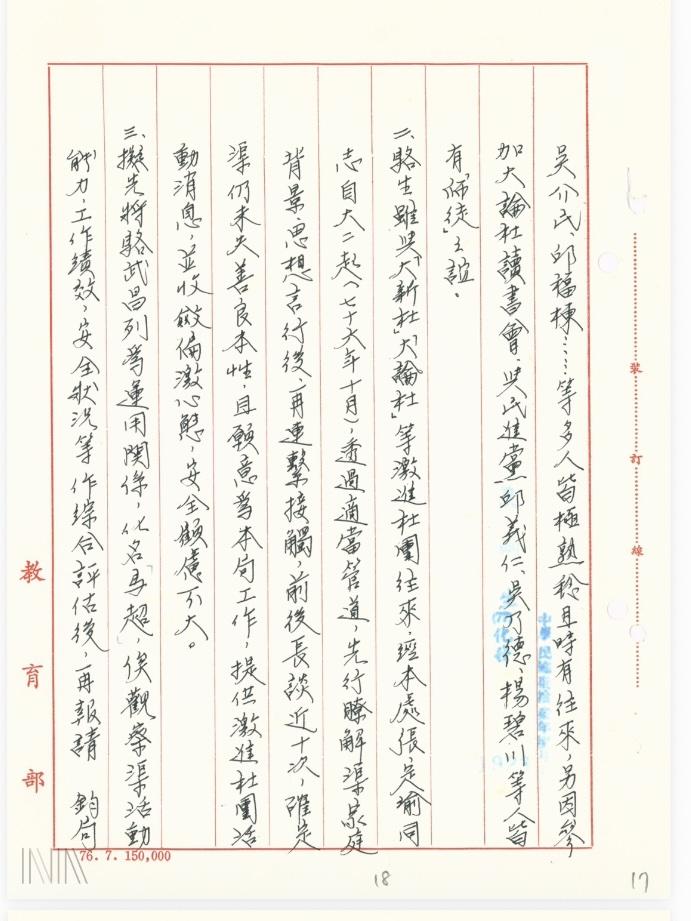 吳介民、邱福棟……等多人皆極熟稔且時有往來,另因參
加大論社讀書會,與民進黨邱義仁、吳乃德、楊碧川等人皆
有「師徒」之誼。
二、駱生雖與「大新社」「大論社」等激進社團往來,經本處張定瑜同
志自大二起(七十六年十月),透過適當管道,先行瞭解渠家庭
背景、思想言行後,再連繫接觸,前後長談近十次,確定
渠仍未失善良本性,且願意為本局工作,提供激進社團活
動消息,並收斂偏激心態,安全顧慮不大。
三、擬先將駱武昌列為運用關係,化名「馬超」,俟觀察渠活動
能力、工作績效、安全狀況等作綜合評估後,再報請 鈞局
裝
訂
線
教育部
76. 7. 150,000
18
17